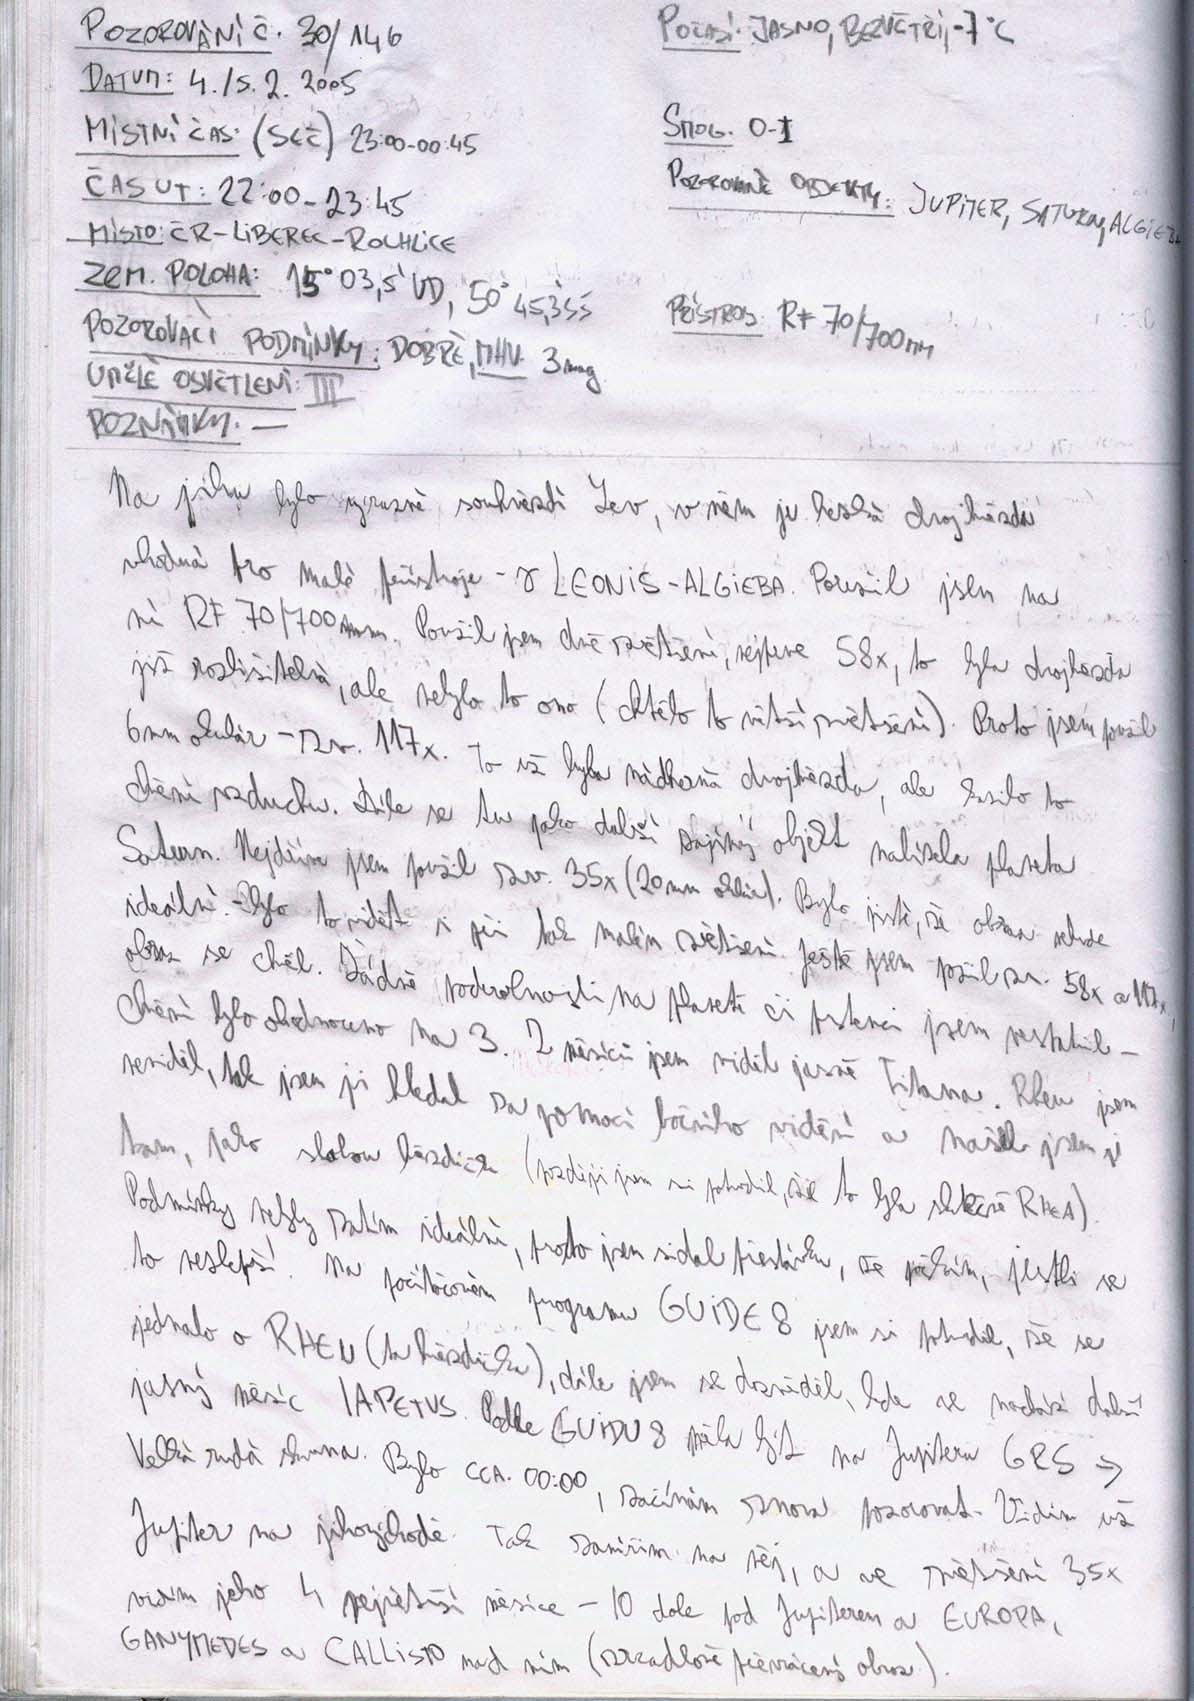 POZOROVÁNÍ Č. 30/146
DATUM: 4./5.2.2005
MÍSTNÍ ČAS: (SEČ) 23:00-00:45
ČAS UT: 22:00-23:45
MÍSTO: ČR-LIBEREC-ROCHLICE
ZEM. POLOHA: 15° 03,5' VD, 50° 45,3' SŠ
POZOROVACÍ PODMÍNKY: DOBRÉ, MHV 3mag
UMĚLÉ OSVĚTLENÍ: III
POZNÁMKY: —
POČASÍ: JASNO, BEZVĚTŘÍ, -7°C
SMOG: 0-1
POZOROVANÉ OBJEKTY: JUPITER, SATURN, ALGIEBA
PŘÍSTROJ: RF 70/700mm
Na jihu bylo výrazné souhvězdí Lev, v něm je hezká dvojhvězda
vhodná pro malé přístroje - γ LEONIS-ALGIEBA. Použil jsem na
ni RF 70/700mm. Použil jsem dvě zvětšení, nejprve 58x, to byla dvojhvězda
již rozlišitelná, ale nebylo to ono (chtělo to větší zvětšení). Proto jsem použil
6mm okulár - zv. 117x. To už byla nádherná dvojhvězda, ale kazilo to
chvění vzduchu. Dále se tu jako další zajímavý objekt nabízela planeta
Saturn. Nejdříve jsem použil zv. 35x (20mm okulár). Bylo jisté, že obraz nebude
ideální. - Bylo to vidět i při tak malém zvětšení. Ještě jsem použil zv. 58x a 117x,
obraz se chvěl. Žádné podrobnosti na planetě či prstenci jsem nespatřil -
chvění bylo ohodnoceno na 3. Z měsíců jsem viděl jasně Titana. Rheu jsem
neviděl, tak jsem ji hledal za pomoci bočního vidění a našel jsem ji
tam, jako slabou hvězdičku (později jsem si potvrdil, že to byla skutečně RHEA).
Podmínky nebyly zatím ideální, proto jsem si dal přestávku, že počkám, jestli se
to nezlepší. Na počítačovém programu GUIDE 8 jsem si potvrdil, že se
jednalo o RHEU (ta hvězdička), dále jsem se dozvěděl, kde se nachází další
jasný měsíc IAPETUS. Podle GUIDU 8 měla být na Jupiteru GRS →
Velká rudá skvrna. Bylo CCA. 00:00, začínám znova pozorovat. Vidím už
Jupiter na jihovýchodě. Tak zamířím na něj, a ve zvětšení 35x
vidím jeho 4 největší měsíce - IO dole pod Jupiterem a EUROPA,
GANYMEDES a CALLISTO nad ním (zrcadlově převrácený obraz).